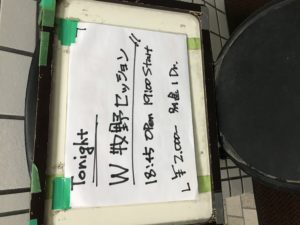 Tonight
W 牧野セッション
18:45 Open 19:00 Start
¥2.000- 別途 1 Dr.